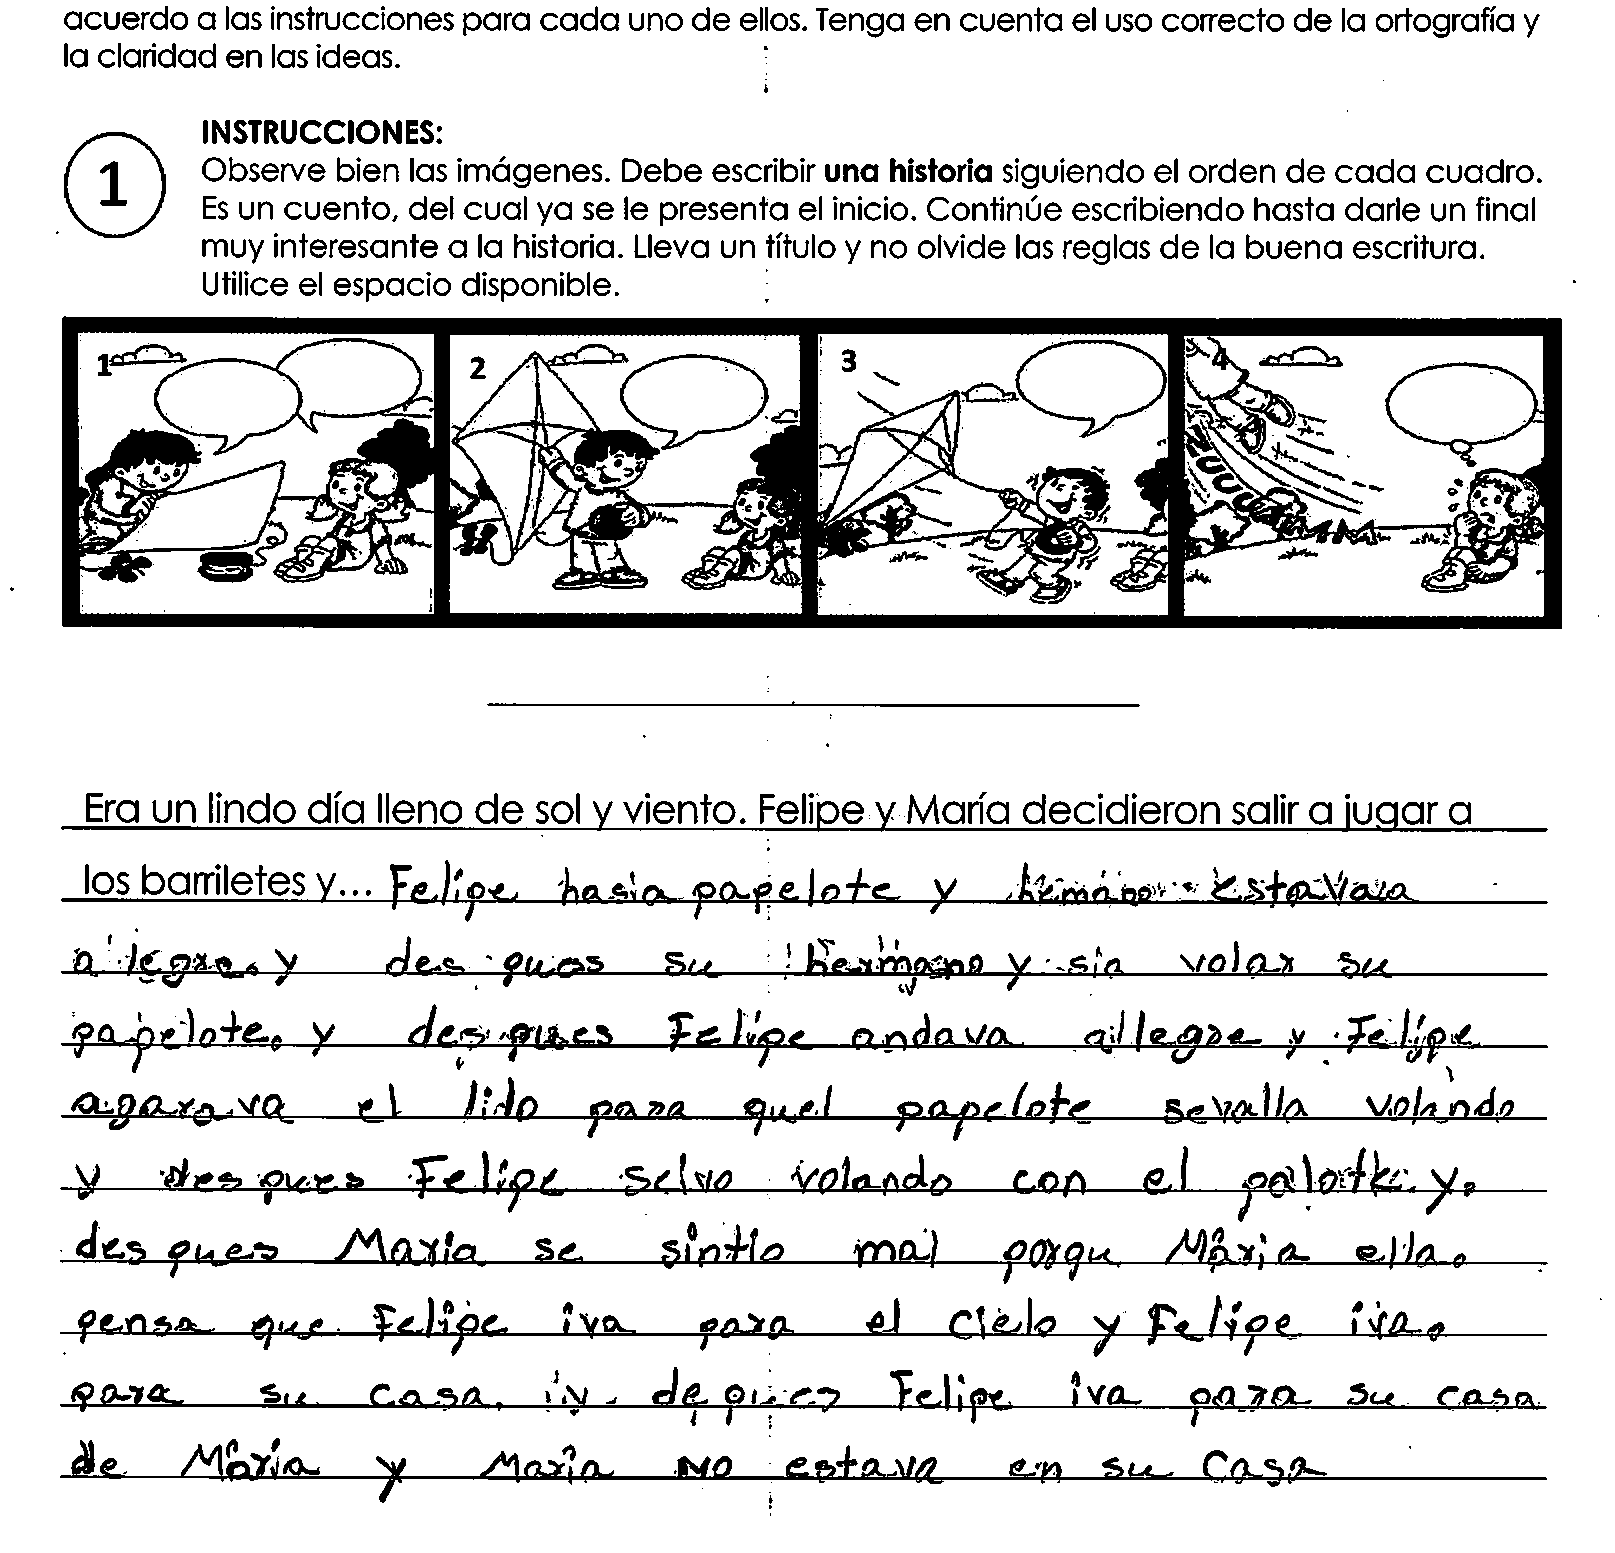 acuerdo a las instrucciones para cada uno de ellos. Tenga en cuenta el uso correcto de la ortografía y
la claridad en las ideas.
1
INSTRUCCIONES:
Observe bien las imágenes. Debe escribir una historia siguiendo el orden de cada cuadro.
Es un cuento, del cual ya se le presenta el inicio. Continúe escribiendo hasta darle un final
muy interesante a la historia. Lleva un título y no olvide las reglas de la buena escritura.
Utilice el espacio disponible.
1 2 3 4
ZUUUUMMM
Era un lindo día lleno de sol y viento. Felipe y María decidieron salir a jugar a
los barriletes y... Felipe hasia papelote y hermano
alegre. y des pues su hermano y sia volar su
papelote. y des pues Felipe andava allegre y Felipe
agarava el lido para quel papelote sevalla volando
y des pues Felipe selvo volando con el y.
des pues Maria se sintio mal porqu Maria ella.
pensa que Felipe iva para el cielo y Felipe iva.
para su casa. y depues Felipe iva para su casa
de Maria y Maria no estava en su casa